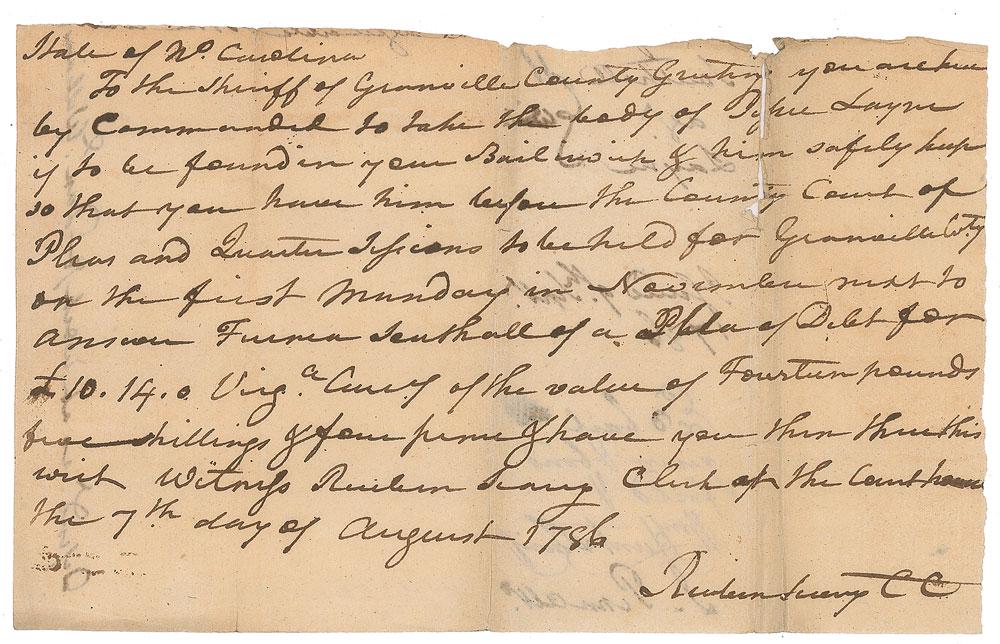 State of No. Carolina
To the Sheriff of Granville County Greeting you are here
by Commanded to take the body of Tyree Layne
if to be found in your Bailiwick & him safely keep
so that you have him before the County Court of
Pleas and Quarter Sessions to be held for Granville Coty
on the first Munday in November next to
answer Furnea Southall of a Plea of Debt for
£10.14.0 Virga Curcy of the value of Fourteen pounds
five shillings & four pence & have you then there this
writ Witness Reuben Searcy Clerk of the Court house
the 7th day of August 1786
Reuben Searcy CC